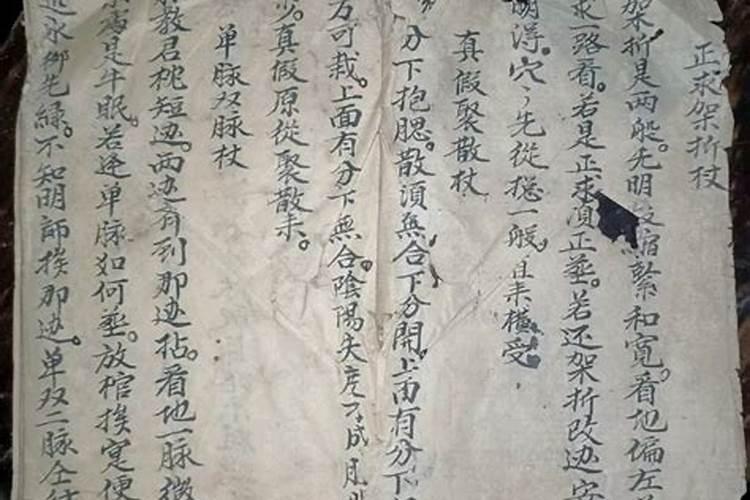 正求架折杖
架折是两般。先明縮繫和寬。看地偏左
求一路看。若是正求須正塟。若还架折改边安
明得。穴々先從穏一般。直来橫受
真假聚散杖
分下抱腮。散須無合下分開。上面有分下
方可裁。上面有分下無合。陰陽失度不成
少。真假原從聚散来。
单脉双脉杖
教君枕短边。两边有到那边拈。看地一脉
是牛眠。若逢单脉如何塟。放棺挨寔便
永鄉先緣。不知明師挨那边。单双二脉仝